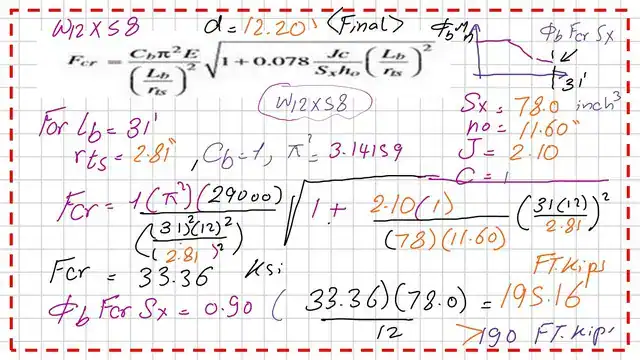 W12X58 d = 12.20" <Final>
Fcr = Cbπ²E / (Lb/rts)² √1 + 0.078 Jc/Sxho (Lb/rts)²
ΦbMn Φb Fcr Sx
31'
W12X58
For Lb = 31'
rts = 2.81", Cb = 1, π² = 3.14159
Sx = 78.0 inch³
ho = 11.60"
J = 2.10
C = 1
Fcr = 1(π²)(29000) / ((31)²(12)² / (2.81)²) √1 + 2.10(1) / (78)(11.60) (31(12)/2.81)²
Fcr = 33.36 Ksi
Φb Fcr Sx = 0.90 (33.36)(78.0) / 12 = 195.16 FT.Kips
>190 FT.Kips